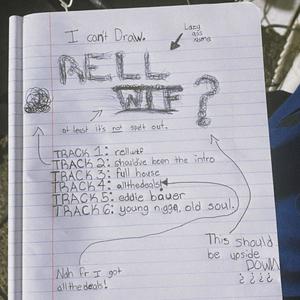 I can't Draw.
Lazy
ass
RELL
WTF?
at least it's not spelt out.
TRACK 1: rellwtf
TRACK 2: should've been the intro
TRACK 3: full house
TRACK 4: allthedeals!
TRACK 5: eddie bauer
TRACK 6: young nigga, old soul.
This should
be upside
DOWN
¿¿¿¿
Nah fr I got
allthedeals!